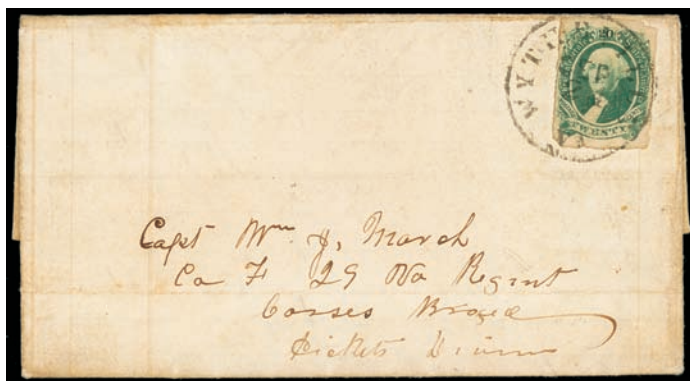 WYTHE
VA
20
TWENTY
Capt Wm J, March
Co F 29 Va Regmt
Corses Brigd
Pickets Divisn